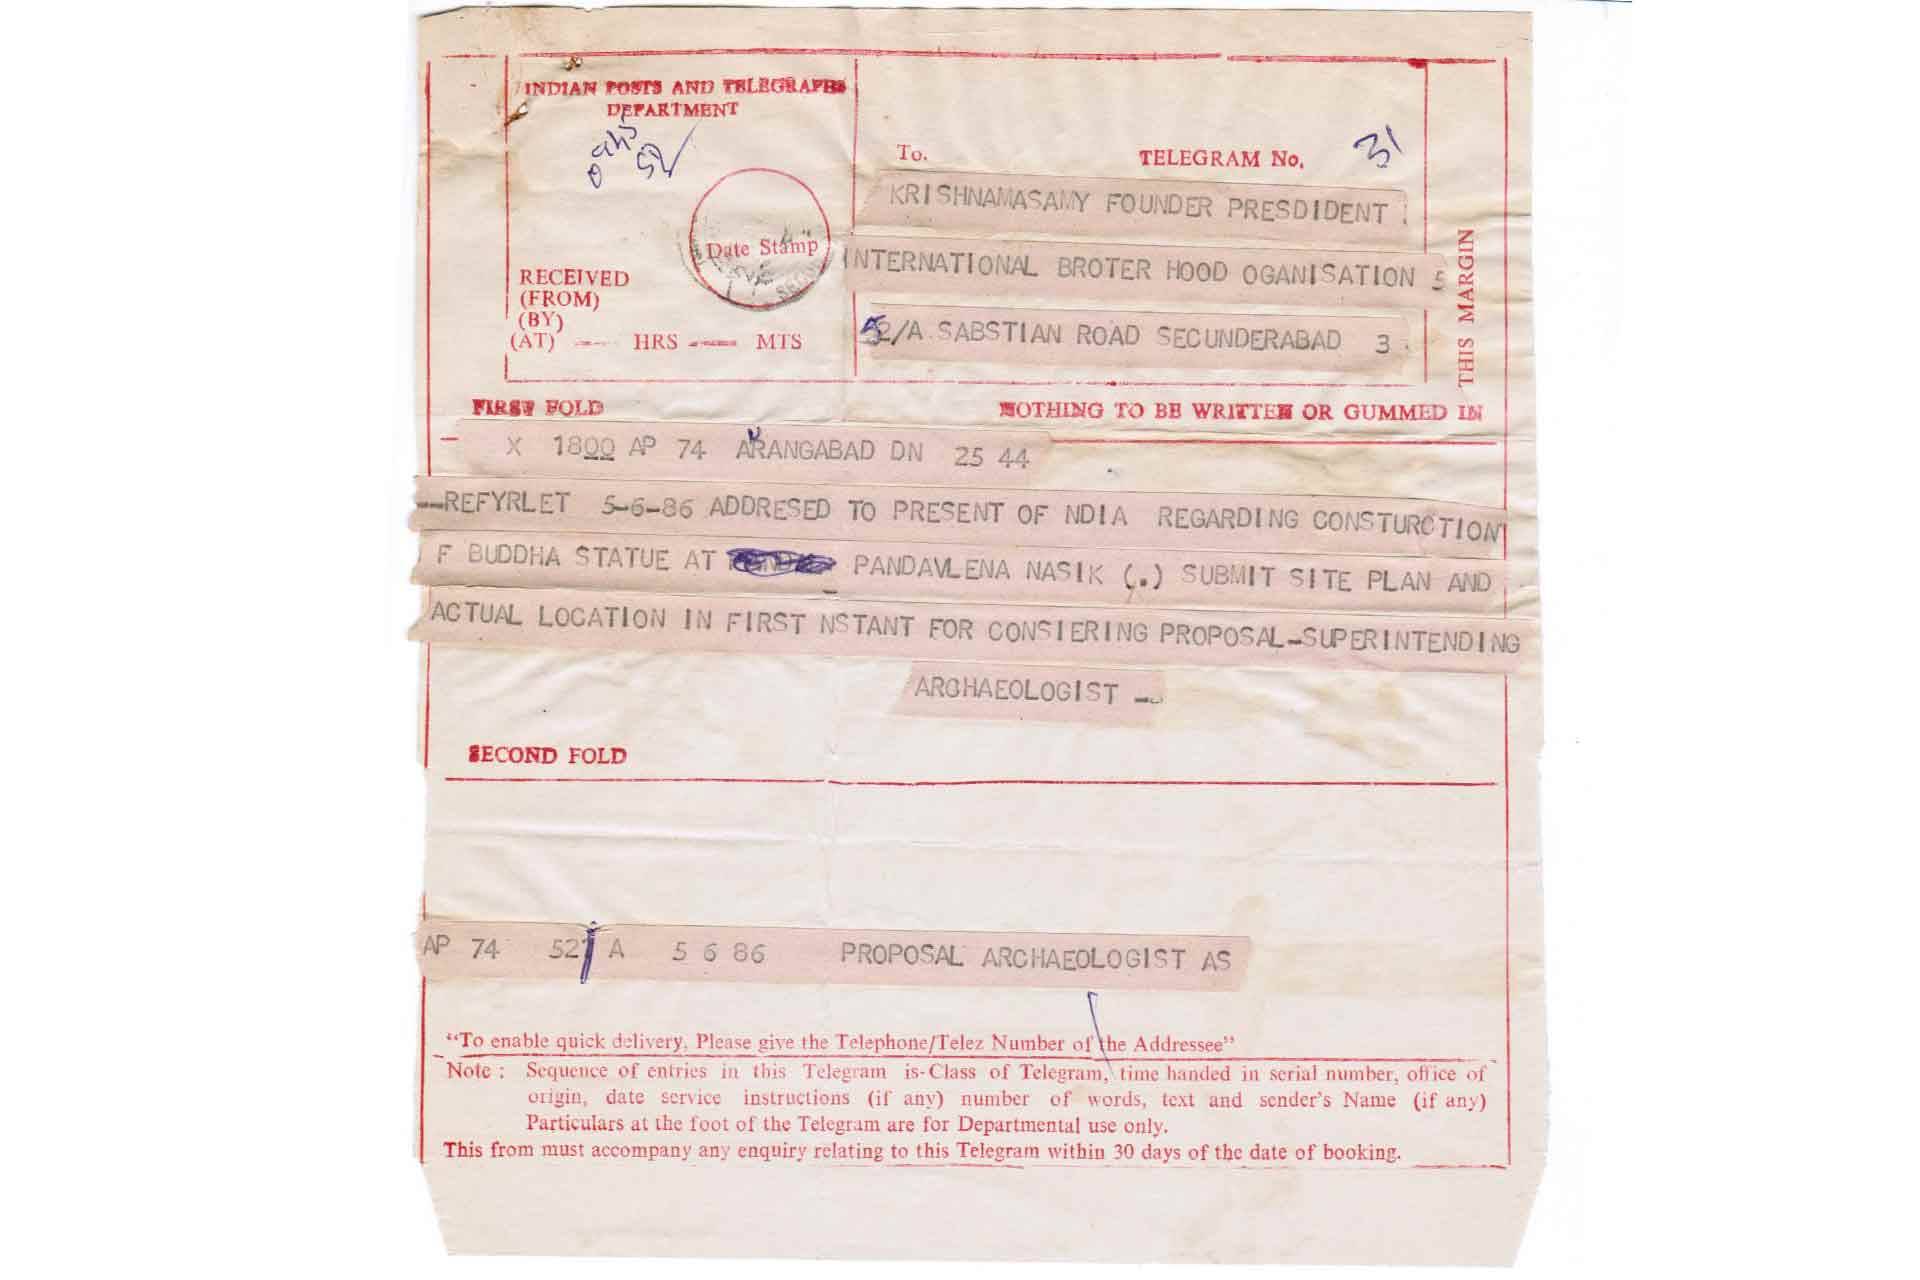 INDIAN POSTS AND TELEGRAPHS
DEPARTMENT
52
To.
TELEGRAM No.
31
KRISHNAMASAMY FOUNDER PRESDIDENT
INTERNATIONAL BROTER HOOD OGANISATION 5
52/A SABSTIAN ROAD SECUNDERABAD 3
Date Stamp
RECEIVED
(FROM)
(BY)
(AT) ---- HRS ---- MTS
THIS MARGIN
FIRST FOLD
NOTHING TO BE WRITTEN OR GUMMED IN
X 1800 AP 74 AURANGABAD DN 25 44
--REFYRLET 5-6-86 ADDRESED TO PRESENT OF NDIA REGARDING CONSTURCTION
F BUDDHA STATUE AT PANDAVLENA NASIK (.) SUBMIT SITE PLAN AND
ACTUAL LOCATION IN FIRST NSTANT FOR CONSIERING PROPOSAL-SUPERINTENDING
ARCHAEOLOGIST --
SECOND FOLD
AP 74 521 A 5 6 86 PROPOSAL ARCHAEOLOGIST AS
"To enable quick delivery, Please give the Telephone/Telez Number of the Addressee"
Note : Sequence of entries in this Telegram is-Class of Telegram, time handed in serial number, office of
origin, date service instructions (if any) number of words, text and sender's Name (if any)
Particulars at the foot of the Telegram are for Departmental use only.
This from must accompany any enquiry relating to this Telegram within 30 days of the date of booking.